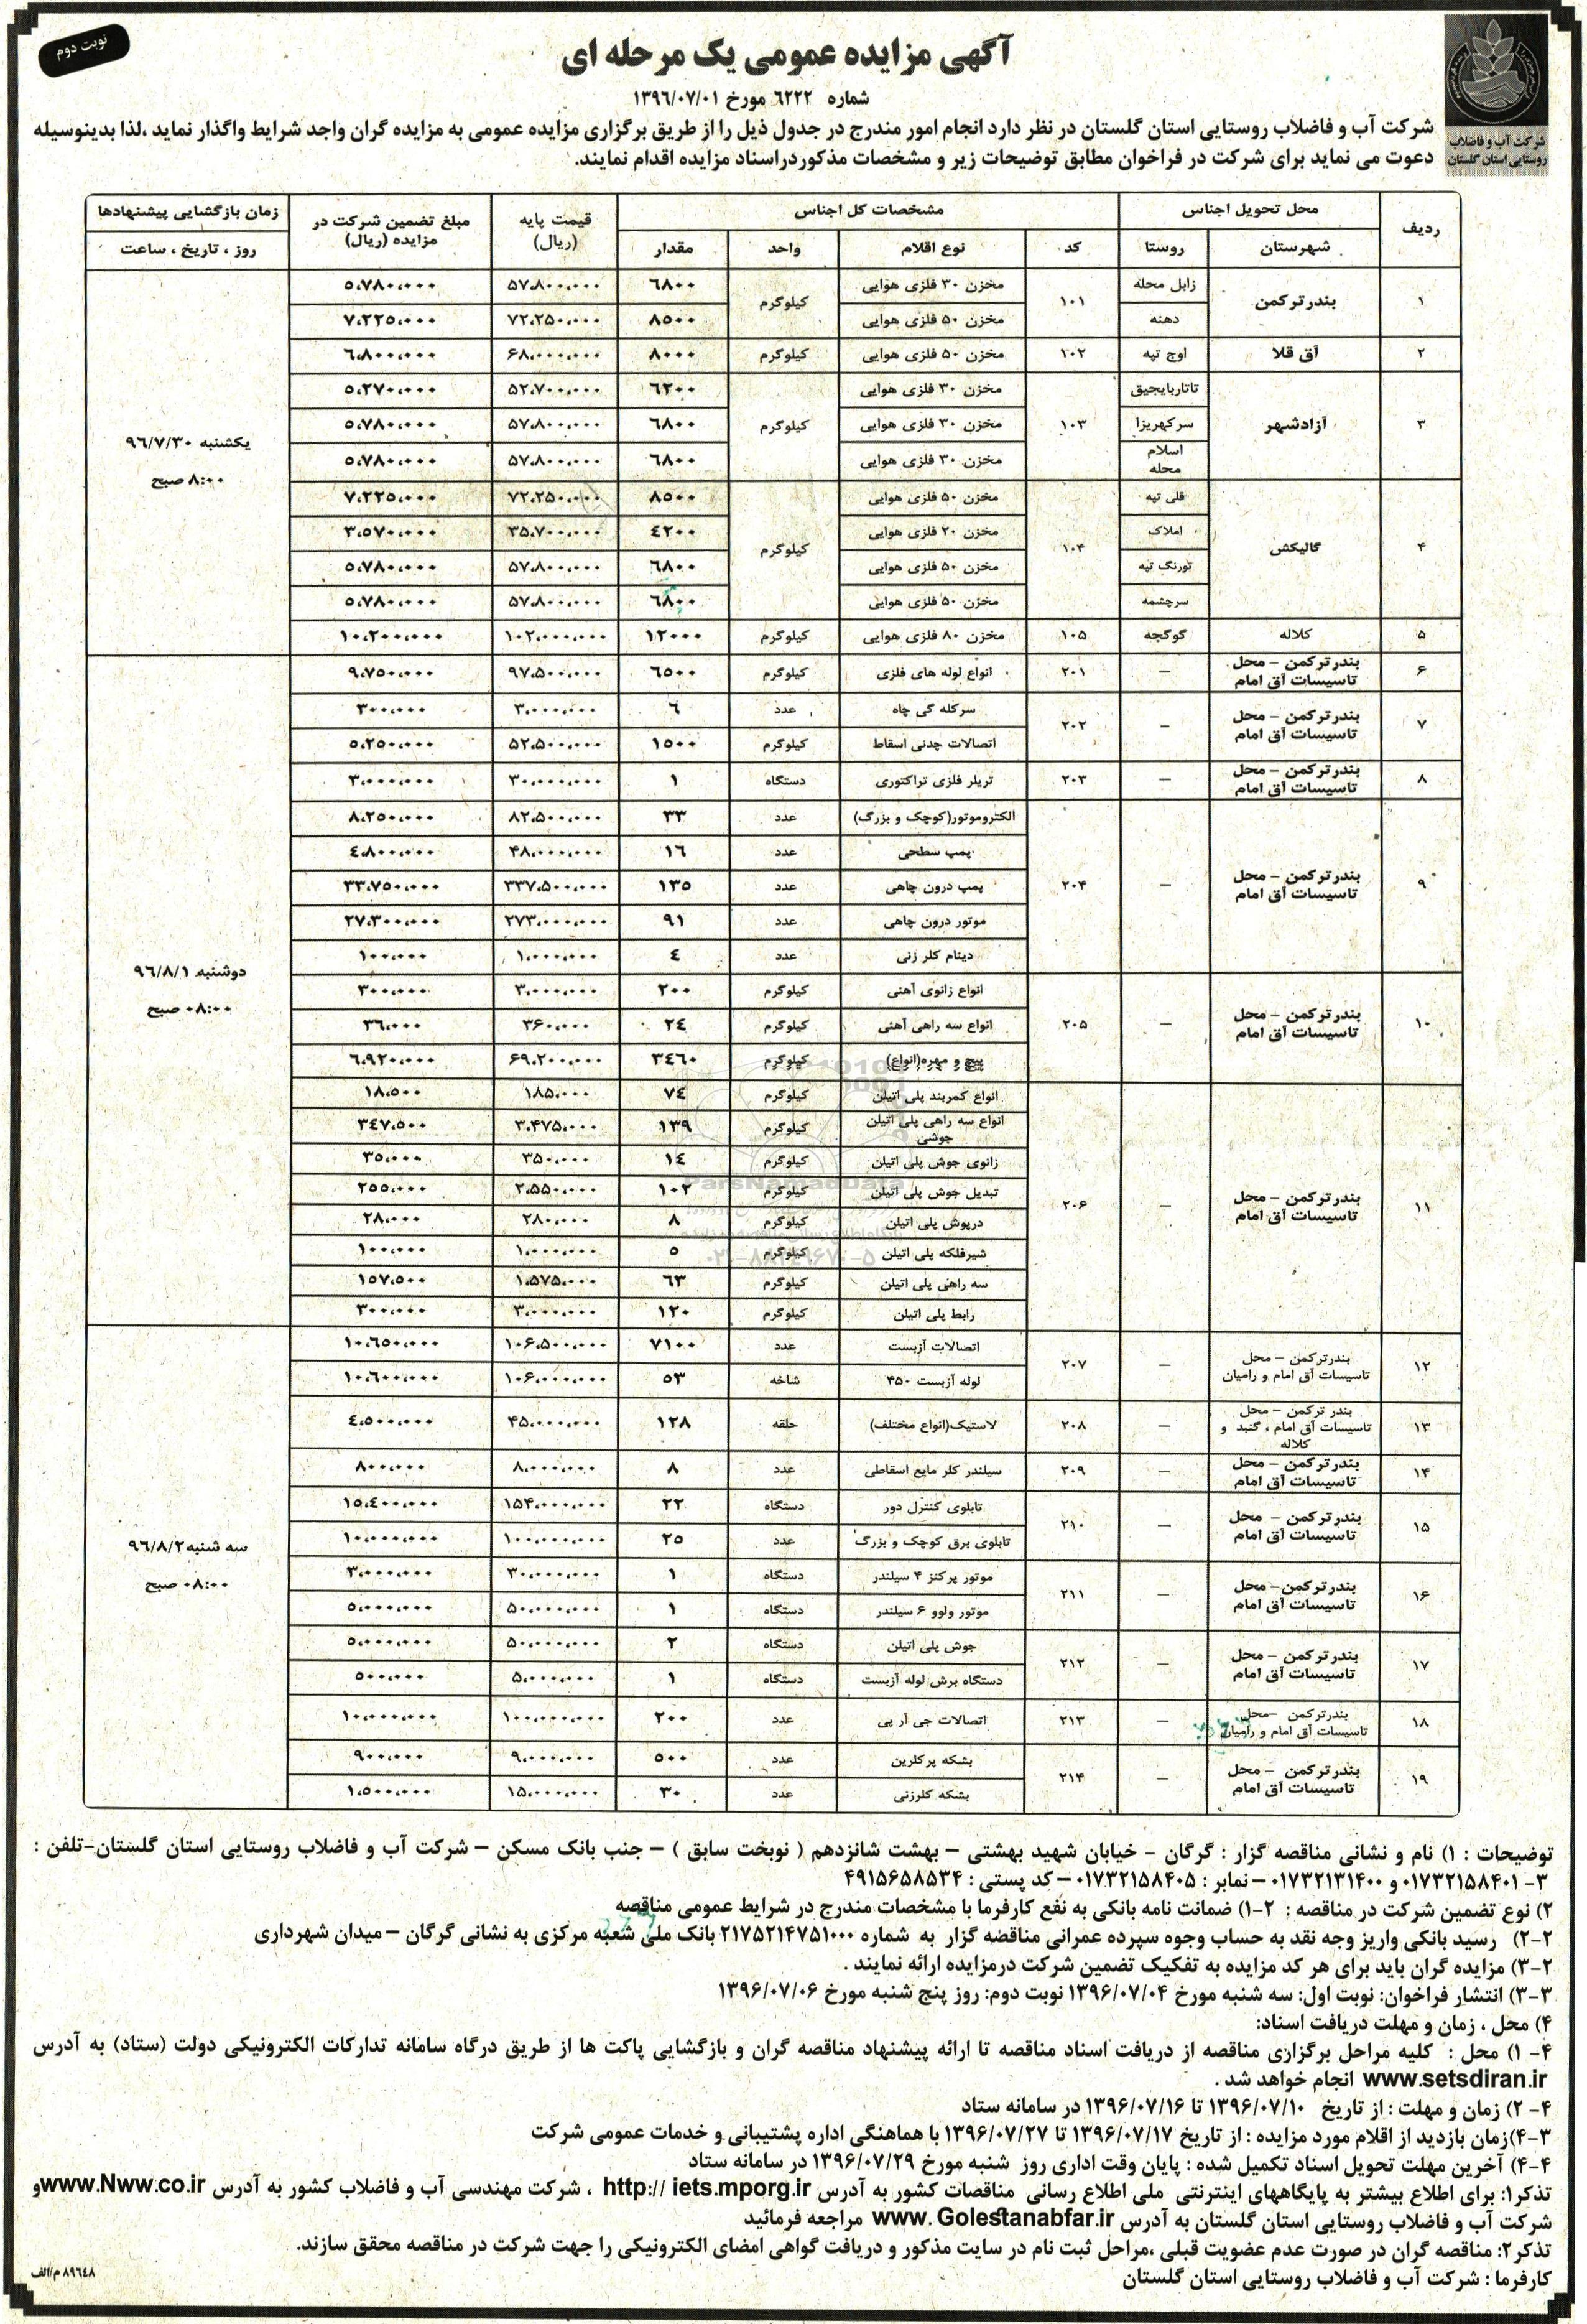 نوبت دوم
آگهی مزایده عمومی یک مرحله ای
شماره ٦٢٢٢ مورخ ۱۳۹٦/۰۷/۰۱
شرکت آب و فاضلاب روستایی استان گلستان
شرکت آب و فاضلاب روستایی استان گلستان در نظر دارد انجام امور مندرج در جدول ذیل را از طریق برگزاری مزایده عمومی به مزایده گران واجد شرایط واگذار نماید ،لذا بدینوسیله
دعوت می نماید برای شرکت در فراخوان مطابق توضیحات زیر و مشخصات مذکوردراسناد مزایده اقدام نمایند.
ردیف | محل تحویل اجناس | مشخصات کل اجناس | قیمت پایه (ریال) | مبلغ تضمین شرکت در مزایده (ریال) | زمان بازگشایی پیشنهادها
شهرستان | روستا | کد | نوع اقلام | واحد | مقدار | روز ، تاریخ ، ساعت
۱ | بندرترکمن | زابل محله | ۱۰۱ | مخزن ۳۰ فلزی هوایی | کیلوگرم | ٦٨٠٠ | ۵۷،۸۰۰،۰۰۰ | ٥،٧٨٠،٠٠٠ | یکشنبه ۹۶/۷/۳۰ ۸:۰۰ صبح
دهنه | مخزن ۵۰ فلزی هوایی | ٨٥٠٠ | ۷۲،۲۵۰،۰۰۰ | ٧،٢٢٥،٠٠٠
۲ | آق قلا | اوج تپه | ۱۰۲ | مخزن ۵۰ فلزی هوایی | کیلوگرم | ٨٠٠٠ | ۶۸،۰۰۰،۰۰۰ | ٦،٨٠٠،٠٠٠
۳ | آزادشهر | تاتاربایجیق | ۱۰۳ | مخزن ۳۰ فلزی هوایی | کیلوگرم | ٦٢٠٠ | ۵۲،۷۰۰،۰۰۰ | ٥،٢٧٠،٠٠٠
سرکهریزا | مخزن ۳۰ فلزی هوایی | ٦٨٠٠ | ۵۷،۸۰۰،۰۰۰ | ٥،٧٨٠،٠٠٠
اسلام محله | مخزن ۳۰ فلزی هوایی | ٦٨٠٠ | ۵۷،۸۰۰،۰۰۰ | ٥،٧٨٠،٠٠٠
۴ | گالیکش | قلی تپه | ۱۰۴ | مخزن ۵۰ فلزی هوایی | کیلوگرم | ٨٥٠٠ | ۷۲،۲۵۰،۰۰۰ | ٧،٢٢٥،٠٠٠
املاک | مخزن ۲۰ فلزی هوایی | ٤٢٠٠ | ۳۵،۷۰۰،۰۰۰ | ٣،٥٧٠،٠٠٠
تورنگ تپه | مخزن ۵۰ فلزی هوایی | ٦٨٠٠ | ۵۷،۸۰۰،۰۰۰ | ٥،٧٨٠،٠٠٠
سرچشمه | مخزن ۵۰ فلزی هوایی | ٦٨٠٠ | ۵۷،۸۰۰،۰۰۰ | ٥،٧٨٠،٠٠٠
۵ | کلاله | گوگجه | ۱۰۵ | مخزن ۸۰ فلزی هوایی | کیلوگرم | ١٢٠٠٠ | ۱۰۲،۰۰۰،۰۰۰ | ١٠،٢٠٠،٠٠٠
۶ | بندرترکمن – محل تاسیسات آق امام | – | ۲۰۱ | انواع لوله های فلزی | کیلوگرم | ٦٥٠٠ | ۹۷،۵۰۰،۰۰۰ | ٩،٧٥٠،٠٠٠ | دوشنبه ۹۶/۸/۱ ۰۸:۰۰ صبح
۷ | بندرترکمن – محل تاسیسات آق امام | – | ۲۰۲ | سرکله گی چاه | عدد | ٦ | ۳،۰۰۰،۰۰۰ | ٣٠٠،٠٠٠
اتصالات چدنی اسقاط | کیلوگرم | ١٥٠٠ | ۵۲،۵۰۰،۰۰۰ | ٥،٢٥٠،٠٠٠
۸ | بندرترکمن – محل تاسیسات آق امام | – | ۲۰۳ | تریلر فلزی تراکتوری | دستگاه | ١ | ۳۰،۰۰۰،۰۰۰ | ٣،٠٠٠،٠٠٠
۹ | بندرترکمن – محل تاسیسات آق امام | – | ۲۰۴ | الکتروموتور(کوچک و بزرگ) | عدد | ٣٣ | ۸۲،۵۰۰،۰۰۰ | ٨،٢٥٠،٠٠٠
پمپ سطحی | عدد | ١٦ | ۴۸،۰۰۰،۰۰۰ | ٤،٨٠٠،٠٠٠
پمپ درون چاهی | عدد | ١٣٥ | ۳۳۷،۵۰۰،۰۰۰ | ٣٣،٧٥٠،٠٠٠
موتور درون چاهی | عدد | ٩١ | ۲۷۳،۰۰۰،۰۰۰ | ٢٧،٣٠٠،٠٠٠
دینام کلر زنی | عدد | ٤ | ۱،۰۰۰،۰۰۰ | ١٠٠،٠٠٠
۱۰ | بندرترکمن – محل تاسیسات آق امام | – | ۲۰۵ | انواع زانوی آهنی | کیلوگرم | ٢٠٠ | ۳،۰۰۰،۰۰۰ | ٣٠٠،٠٠٠
انواع سه راهی آهنی | کیلوگرم | ٢٤ | ۳۶۰،۰۰۰ | ٣٦،٠٠٠
پیچ و مهره(انواع) | کیلوگرم | ٣٤٦٠ | ۶۹،۲۰۰،۰۰۰ | ٦،٩٢٠،٠٠٠
۱۱ | بندرترکمن – محل تاسیسات آق امام | – | ۲۰۶ | انواع کمربند پلی اتیلن | کیلوگرم | ٧٤ | ۱۸۵،۰۰۰ | ١٨،٥٠٠
انواع سه راهی پلی اتیلن جوشی | کیلوگرم | ١٣٩ | ۳،۴۷۵،۰۰۰ | ٣٤٧،٥٠٠
زانوی جوش پلی اتیلن | کیلوگرم | ١٤ | ۳۵۰،۰۰۰ | ٣٥،٠٠٠
تبدیل جوش پلی اتیلن | کیلوگرم | ١٠٢ | ۲،۵۵۰،۰۰۰ | ٢٥٥،٠٠٠
درپوش پلی اتیلن | کیلوگرم | ٨ | ۲۸۰،۰۰۰ | ٢٨،٠٠٠
شیرفلکه پلی اتیلن | کیلوگرم | ٥ | ۱،۰۰۰،۰۰۰ | ١٠٠،٠٠٠
سه راهی پلی اتیلن | کیلوگرم | ٦٣ | ۱،۵۷۵،۰۰۰ | ١٥٧،٥٠٠
رابط پلی اتیلن | کیلوگرم | ١٢٠ | ۳،۰۰۰،۰۰۰ | ٣٠٠،٠٠٠
۱۲ | بندرترکمن – محل تاسیسات آق امام و رامیان | – | ۲۰۷ | اتصالات آزبست | عدد | ٧١٠٠ | ۱۰۶،۵۰۰،۰۰۰ | ١٠،٦٥٠،٠٠٠ | سه شنبه ۹۶/۸/۲ ۰۸:۰۰ صبح
لوله آزبست ۴۵۰ | شاخه | ٥٣ | ۱۰۶،۰۰۰،۰۰۰ | ١٠،٦٠٠،٠٠٠
۱۳ | بندر ترکمن – محل تاسیسات آق امام ، گنبد و کلاله | – | ۲۰۸ | لاستیک(انواع مختلف) | حلقه | ١٢٨ | ۴۵،۰۰۰،۰۰۰ | ٤،٥٠٠،٠٠٠
۱۴ | بندرترکمن – محل تاسیسات آق امام | – | ۲۰۹ | سیلندر کلر مایع اسقاطی | عدد | ٨ | ۸،۰۰۰،۰۰۰ | ٨٠٠،٠٠٠
۱۵ | بندرترکمن – محل تاسیسات آق امام | – | ۲۱۰ | تابلوی کنترل دور | دستگاه | ٢٢ | ۱۵۴،۰۰۰،۰۰۰ | ١٥،٤٠٠،٠٠٠
تابلوی برق کوچک و بزرگ | عدد | ٢٥ | ۱۰۰،۰۰۰،۰۰۰ | ١٠،٠٠٠،٠٠٠
۱۶ | بندرترکمن– محل تاسیسات آق امام | – | ۲۱۱ | موتور پرکنز ۴ سیلندر | دستگاه | ١ | ۳۰،۰۰۰،۰۰۰ | ٣،٠٠٠،٠٠٠
موتور ولوو ۶ سیلندر | دستگاه | ١ | ۵۰،۰۰۰،۰۰۰ | ٥،٠٠٠،٠٠٠
۱۷ | بندرترکمن – محل تاسیسات آق امام | – | ۲۱۲ | جوش پلی اتیلن | دستگاه | ٢ | ۵۰،۰۰۰،۰۰۰ | ٥،٠٠٠،٠٠٠
دستگاه برش لوله آزبست | دستگاه | ١ | ۵،۰۰۰،۰۰۰ | ٥٠٠،٠٠٠
۱۸ | بندرترکمن –محل تاسیسات آق امام و رامیان | – | ۲۱۳ | اتصالات جی آر پی | عدد | ٢٠٠ | ۱۰۰،۰۰۰،۰۰۰ | ١٠،٠٠٠،٠٠٠
۱۹ | بندرترکمن – محل تاسیسات آق امام | – | ۲۱۴ | بشکه پرکلرین | عدد | ٥٠٠ | ۹،۰۰۰،۰۰۰ | ٩٠٠،٠٠٠
بشکه کلرزنی | عدد | ٣٠ | ۱۵،۰۰۰،۰۰۰ | ١،٥٠٠،٠٠٠
ParsNamadData
۰۲۱-۸۸۳۴۹۶۷۰-۵
توضیحات : ۱) نام و نشانی مناقصه گزار : گرگان - خیابان شهید بهشتی – بهشت شانزدهم ( نوبخت سابق ) – جنب بانک مسکن – شرکت آب و فاضلاب روستایی استان گلستان-تلفن :
۳- ۰۱۷۳۲۱۵۸۴۰۱ و ۰۱۷۳۲۱۳۱۴۰۰ – نمابر : ۰۱۷۳۲۱۵۸۴۰۵ – کد پستی : ۴۹۱۵۶۵۸۵۳۴
۲) نوع تضمین شرکت در مناقصه : ۲-۱) ضمانت نامه بانکی به نفع کارفرما با مشخصات مندرج در شرایط عمومی مناقصه
۲-۲) رسید بانکی واریز وجه نقد به حساب وجوه سپرده عمرانی مناقصه گزار به شماره ۲۱۷۵۲۱۴۷۵۱۰۰۰ بانک ملی شعبه مرکزی به نشانی گرگان – میدان شهرداری
۳-۲) مزایده گران باید برای هر کد مزایده به تفکیک تضمین شرکت درمزایده ارائه نمایند .
۳-۳) انتشار فراخوان: نوبت اول: سه شنبه مورخ ۱۳۹۶/۰۷/۰۴ نوبت دوم: روز پنج شنبه مورخ ۱۳۹۶/۰۷/۰۶
۴) محل ، زمان و مهلت دریافت اسناد:
۴- ۱) محل : کلیه مراحل برگزاری مناقصه از دریافت اسناد مناقصه تا ارائه پیشنهاد مناقصه گران و بازگشایی پاکت ها از طریق درگاه سامانه تدارکات الکترونیکی دولت (ستاد) به آدرس
www.setsdiran.ir انجام خواهد شد .
۴- ۲) زمان و مهلت : از تاریخ ۱۳۹۶/۰۷/۱۰ تا ۱۳۹۶/۰۷/۱۶ در سامانه ستاد
۴-۳)زمان بازدید از اقلام مورد مزایده : از تاریخ ۱۳۹۶/۰۷/۱۷ تا ۱۳۹۶/۰۷/۲۷ با هماهنگی اداره پشتیبانی و خدمات عمومی شرکت
۴-۴) آخرین مهلت تحویل اسناد تکمیل شده : پایان وقت اداری روز شنبه مورخ ۱۳۹۶/۰۷/۲۹ در سامانه ستاد
تذکر۱: برای اطلاع بیشتر به پایگاههای اینترنتی ملی اطلاع رسانی مناقصات کشور به آدرس http:// iets.mporg.ir ، شرکت مهندسی آب و فاضلاب کشور به آدرس www.Nww.co.ir و
شرکت آب و فاضلاب روستایی استان گلستان به آدرس www. Golestanabfar.ir مراجعه فرمائید
تذکر۲: مناقصه گران در صورت عدم عضویت قبلی ،مراحل ثبت نام در سایت مذکور و دریافت گواهی امضای الکترونیکی را جهت شرکت در مناقصه محقق سازند.
کارفرما : شرکت آب و فاضلاب روستایی استان گلستان
۸۹٦٤۸ م/الف